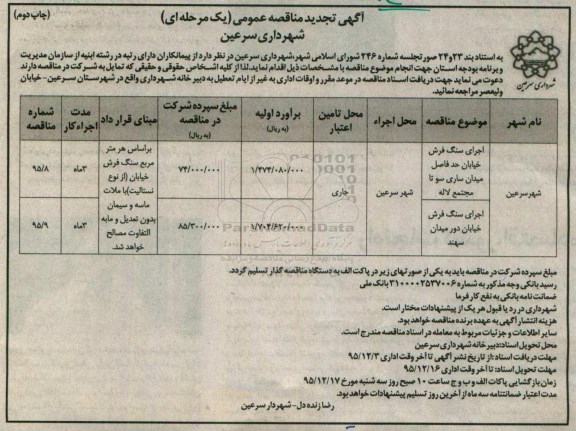 آگهی تجدید مناقصه عمومی (یک مرحله ای)
(چاپ دوم)
شهرداری سرعین
شهرداری سرعین
به استناد بند ۲۳و۲۴ صورتجلسه شماره ۲۴۶ شورای اسلامی شهر،شهرداری سرعین در نظر دارد از پیمانکاران دارای رتبه در رشته ابنیه از سازمان مدیریت
و برنامه بودجه استان جهت انجام موضوع مناقصه با مشخصات ذیل اقدام نماید.لذا از کلیه اشخاص حقوقی و حقیقی که تمایل به شرکت در مناقصه دارند
دعوت می نماید جهت دریافت اسناد مناقصه در موعد مقرر و اوقات اداری به غیر از ایام تعطیل به دبیرخانه شهرداری واقع در شهرستان سرعین- خیابان
ولیعصر مراجعه نمائید.
نام شهر
موضوع مناقصه
محل اجراء
محل تامین اعتبار
برآورد اولیه (به ریال)
مبلغ سپرده شرکت در مناقصه (به ریال)
مبنای قرار داد
مدت اجراء کار
شماره مناقصه
شهرسرعین
اجرای سنگ فرش
خیابان حد فاصل
میدان ساری سو تا
مجتمع لاله
شهر سرعین
جاری
۱/۴۷۳/۰۸۰/۰۰۰
۷۴/۰۰۰/۰۰۰
براساس هر متر
مربع سنگ فرش
خیابان (از نوع
نستالیت)با ملات
ماسه و سیمان
بدون تعدیل و مابه
التفاوت مصالح
خواهد شد.
۳ماه
۹۵/۸
اجرای سنگ فرش
خیابان دور میدان
سهند
۱/۷۰۴/۶۲۰/۰۰۰
۸۵/۳۰۰/۰۰۰
۳ماه
۹۵/۹
مبلغ سپرده شرکت در مناقصه باید به یکی از صورتهای زیر در پاکت الف به دستگاه مناقصه گذار تسلیم گردد.
رسید بانکی وجه مذکور به شماره ۳۱۰۰۰۰۲۵۳۷۰۰۶ بانک ملی
ضمانت نامه بانکی به نفع کارفرما
شهرداری در رد یا قبول هر یک از پیشنهادات مختار است.
هزینه انتشار آگهی به عهده برنده مناقصه خواهد بود.
سایر اطلاعات و جزئیات مربوط به معامله در اسناد مناقصه مندرج است.
محل تحویل اسناد:دبیرخانه شهرداری سرعین
مهلت دریافت اسناد :از تاریخ نشر آگهی تا آخر وقت اداری ۹۵/۱۲/۳
مهلت تحویل اسناد: تا آخر وقت اداری ۹۵/۱۲/۱۶
زمان بازگشایی پاکات الف و ب و ج ساعت ۱۰ صبح روز سه شنبه مورخ ۹۵/۱۲/۱۷
مدت اعتبار ضمانتنامه سه ماه از آخرین روز تسلیم پیشنهادات خواهد بود.
رضا زنده دل- شهردار سرعین